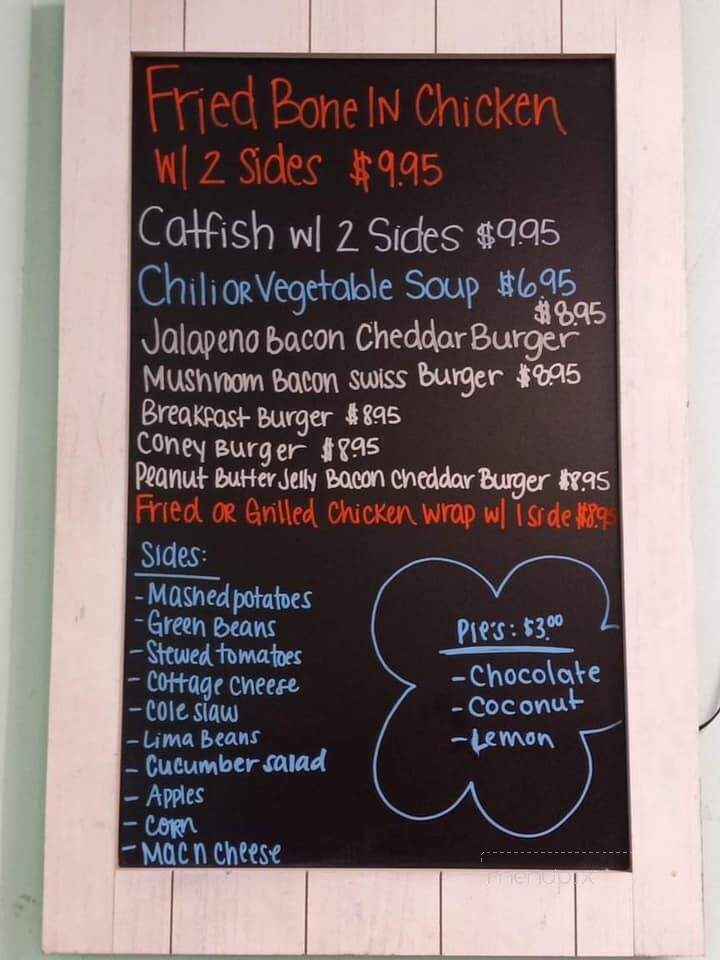 Fried Bone IN Chicken
W/ 2 Sides $9.95
Catfish w/ 2 Sides $9.95
Chili OR Vegetable Soup $6.95
$8.95
Jalapeno Bacon Cheddar Burger
Mushroom Bacon Swiss Burger $8.95
Breakfast Burger $8.95
Coney Burger $8.95
Peanut Butter Jelly Bacon Cheddar Burger $8.95
Fried OR Grilled Chicken Wrap w/ 1 side $8.95
Sides:
- Mashed potatoes
- Green Beans
- Stewed tomatoes
- Cottage Cheese
- Cole slaw
- Lima Beans
- Cucumber salad
- Apples
- Corn
- Mac n Cheese
Pie's: $3.00
- Chocolate
- Coconut
- Lemon
menupix